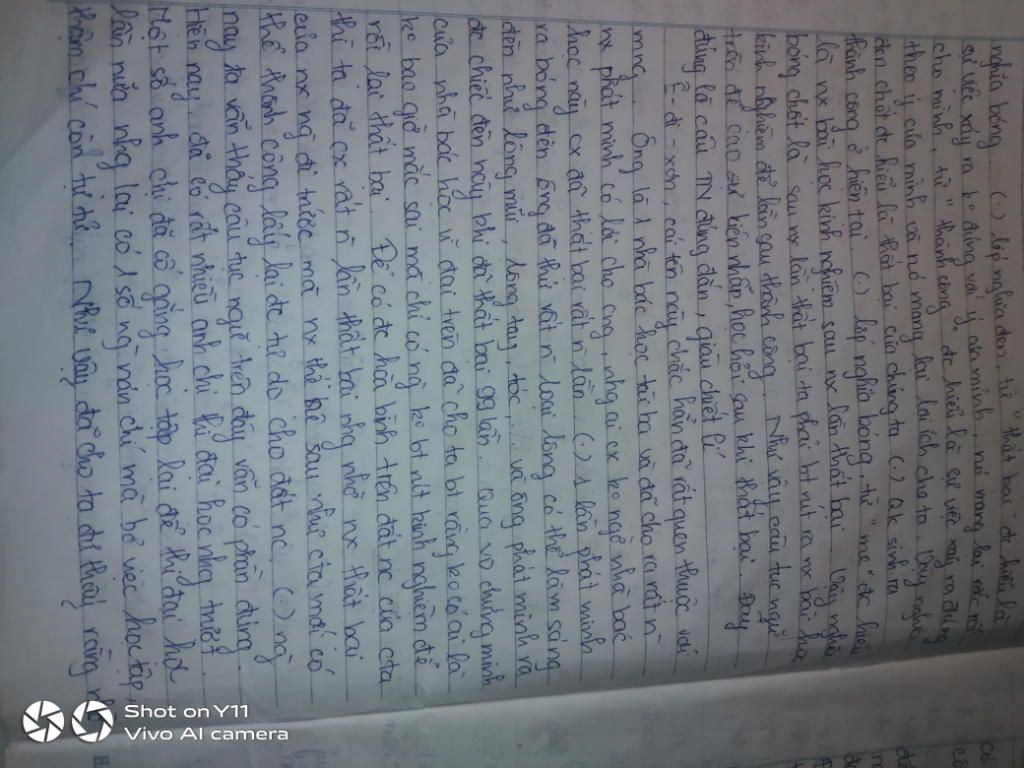 nghĩa bóng. (.) lớp nghĩa đen, từ "thất bại" đc hiểu là
sự việc xảy ra ko đúng với ý của mình, nó mang lại rắc rối
cho mình, từ "thành công" đc hiểu là sự việc xảy ra đúng
theo ý của mình và nó mang lại lợi ích cho ta. Vậy nghĩa
đen chốt đc hiểu là thất bại của chúng ta (.) qk sinh ra
thành công ở hiện tại. (.) lớp nghĩa bóng, từ "mẹ" đc hiểu
là nx bài học kinh nghiệm sau nx lần thất bại. Vậy nghĩa
bóng chốt là sau nx lần thất bại ta phải bt rút ra nx bài học
kinh nghiệm để lần sau thành công. Như vậy câu tục ngữ
trên đề cao sự kiên nhẫn, học hỏi sau khi thất bại. Đây
đúng là câu TN đúng đắn, giàu chiết lí
Ê-đi-xơn, cái tên này chắc hẳn đã rất quen thuộc với
mng. Ông là 1 nhà bác học tài ba và đã cho ra rất n`
nx phát minh có lợi cho cng, nhg ai cx ko ngờ nhà bác
học này cx đã thất bại rất n` lần. (.) 1 lần phát minh
ra bóng đèn ông đã thử rất n` loại lông có thể làm sáng
đèn như lông mũi, lông tay, tóc,... và ông phát minh ra
đc chiếc đèn này khi đã thất bại 99 lần. Qua vd chứng minh
của nhà bác học vĩ đại trên đã cho ta bt rằng ko có ai là
ko bao giờ mắc sai mà chỉ có ng ko bt rút kinh nghiệm để
rồi lại thất bại. Để có đc hòa bình trên đất nc của cta
thì ta đã cx rất n` lần thất bại nhg nhờ nx thất bại
của nx ng đi trước mà nx thế hệ sau như cta mới có
thể thành công lấy lại đc tự do cho đất nc. (.) ng`
nay ta vẫn thấy câu tục ngữ trên đây vẫn có phần đúng.
Hiện nay, đã có rất nhiều anh chị thi đại học nhg trượt.
Một số anh chị đã cố gắng học tập lại để thi đại học
lần nữa nhg lại có 1 số ng nản chí mà bỏ việc học tập,
thậm chí còn tự tử. Như vậy đã cho ta để thấy rằng